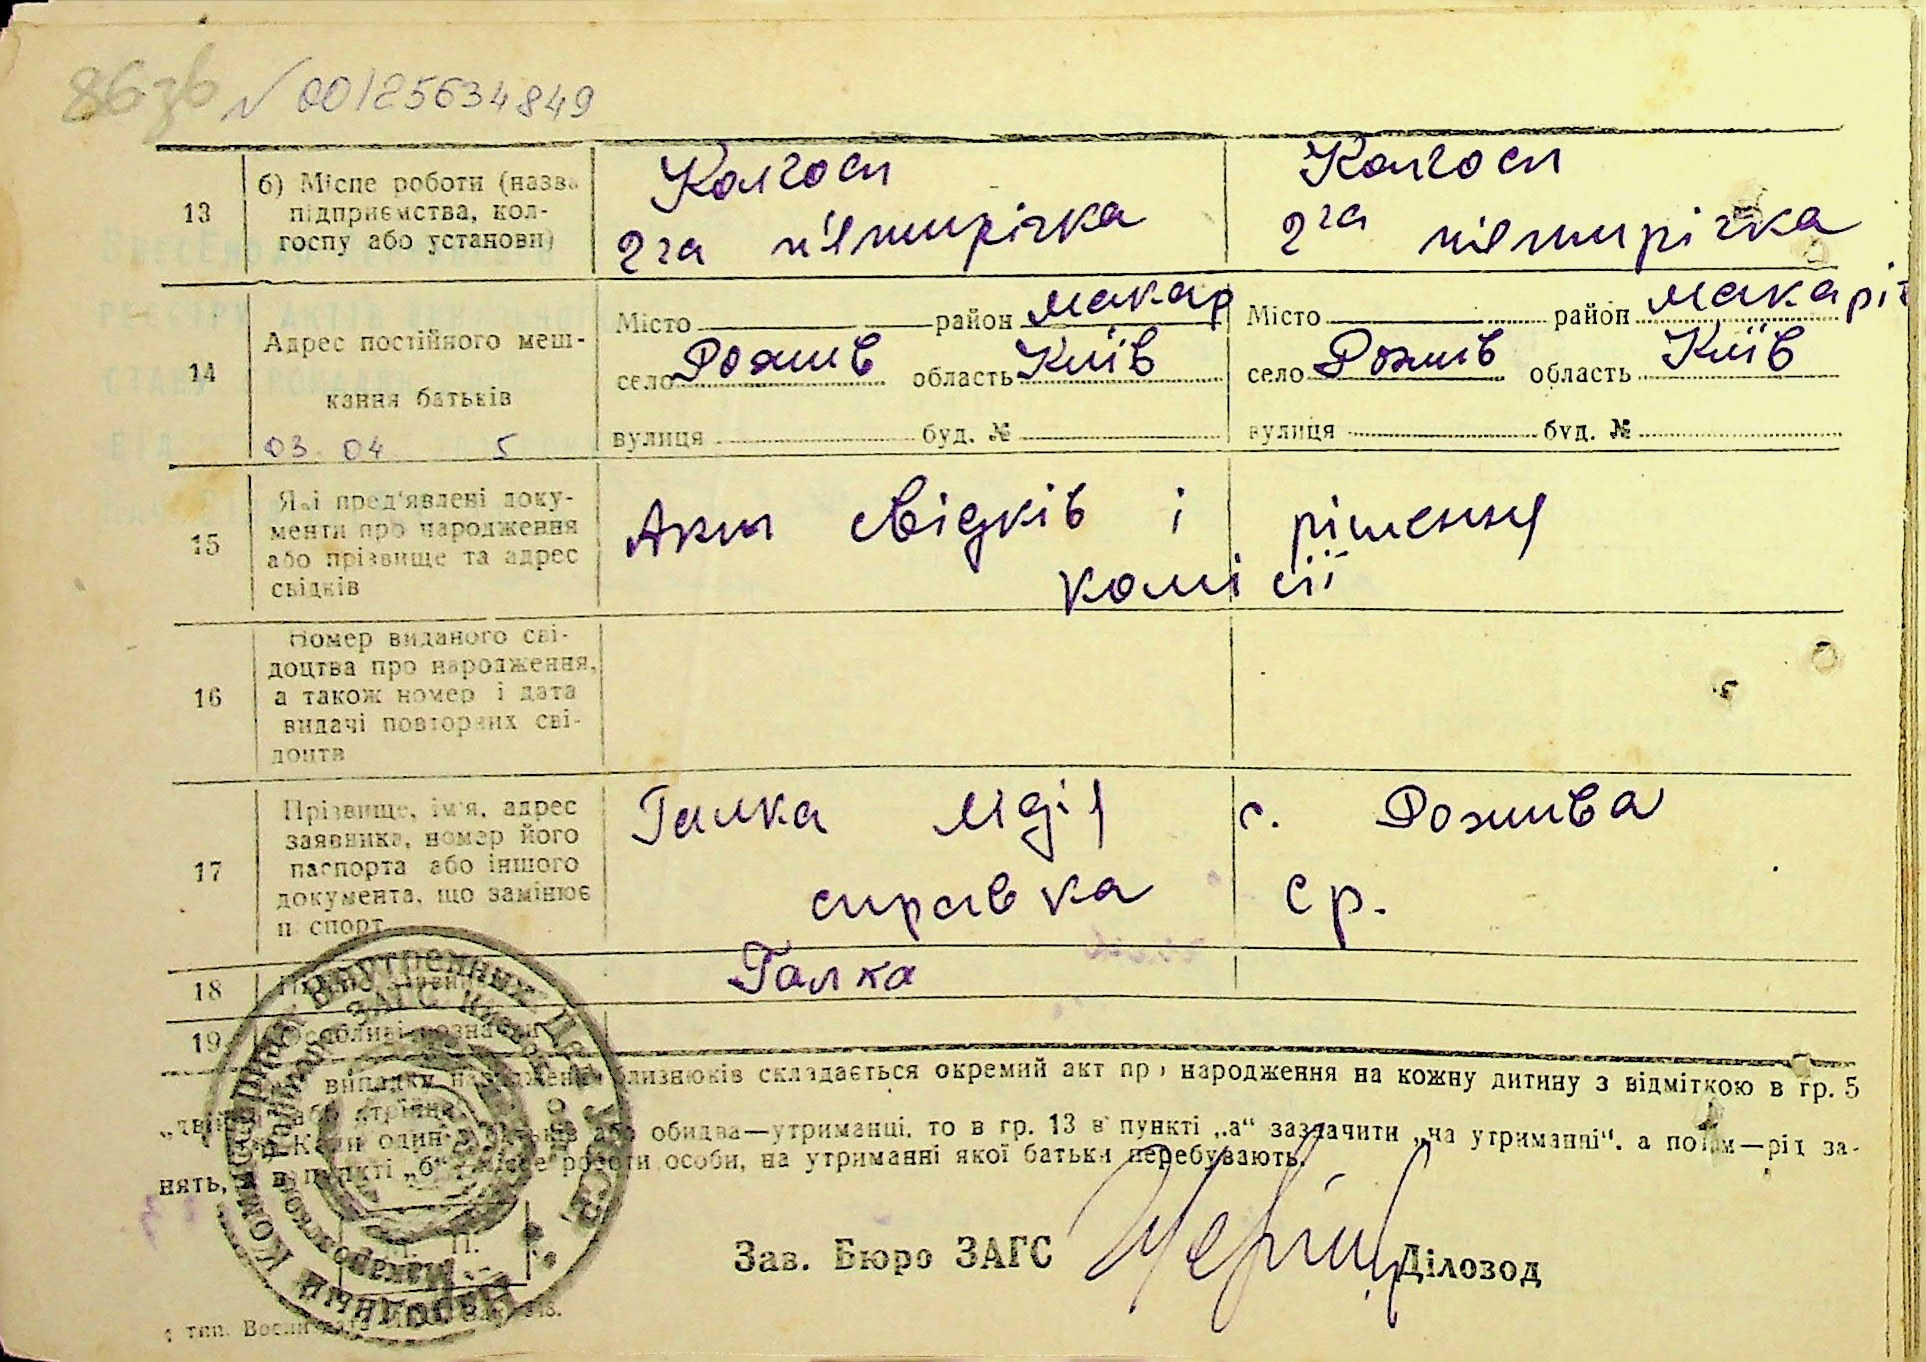 86зв № 00125634849
13 б) Місце роботи (назва підприємства, колгоспу або установи)
Колгосп
2га п'ятирічка
Колгосп
2га п'ятирічка
14 Адрес постійного мешкання батьків
03 04 5
Місто район Макар
село Рожив область Київ
вулиця буд. №
Місто район Макарів
село Рожів область Київ
вулиця буд. №
15 Які пред'явлені документи про народження або прізвище та адрес свідків
Акт свідків і рішення
комісії
16 Номер виданого свідоцтва про народження, а також номер і дата видачі повторних свідоцтв
17 Прізвище, ім'я, адрес заявника, номер його паспорта або іншого документа, що замінює п спорт
Галка с. Рожива
справка ср.
18
Галка
19 Особливі познач
випадку народження близнюків складається окремий акт про народження на кожну дитину з відміткою в гр. 5
„двій або трійня
Коли один з батьків або обидва—утриманці, то в гр. 13 в пункті „а“ зазначити „на утриманні“, а потім—рід за-
нять, а в пункті „б“ місце роботи особи, на утриманні якої батьки перебувають.
М. П.
Зав. Бюро ЗАГС Діловод
Народный Комиссариат Внутренних Дел УССР
тип.